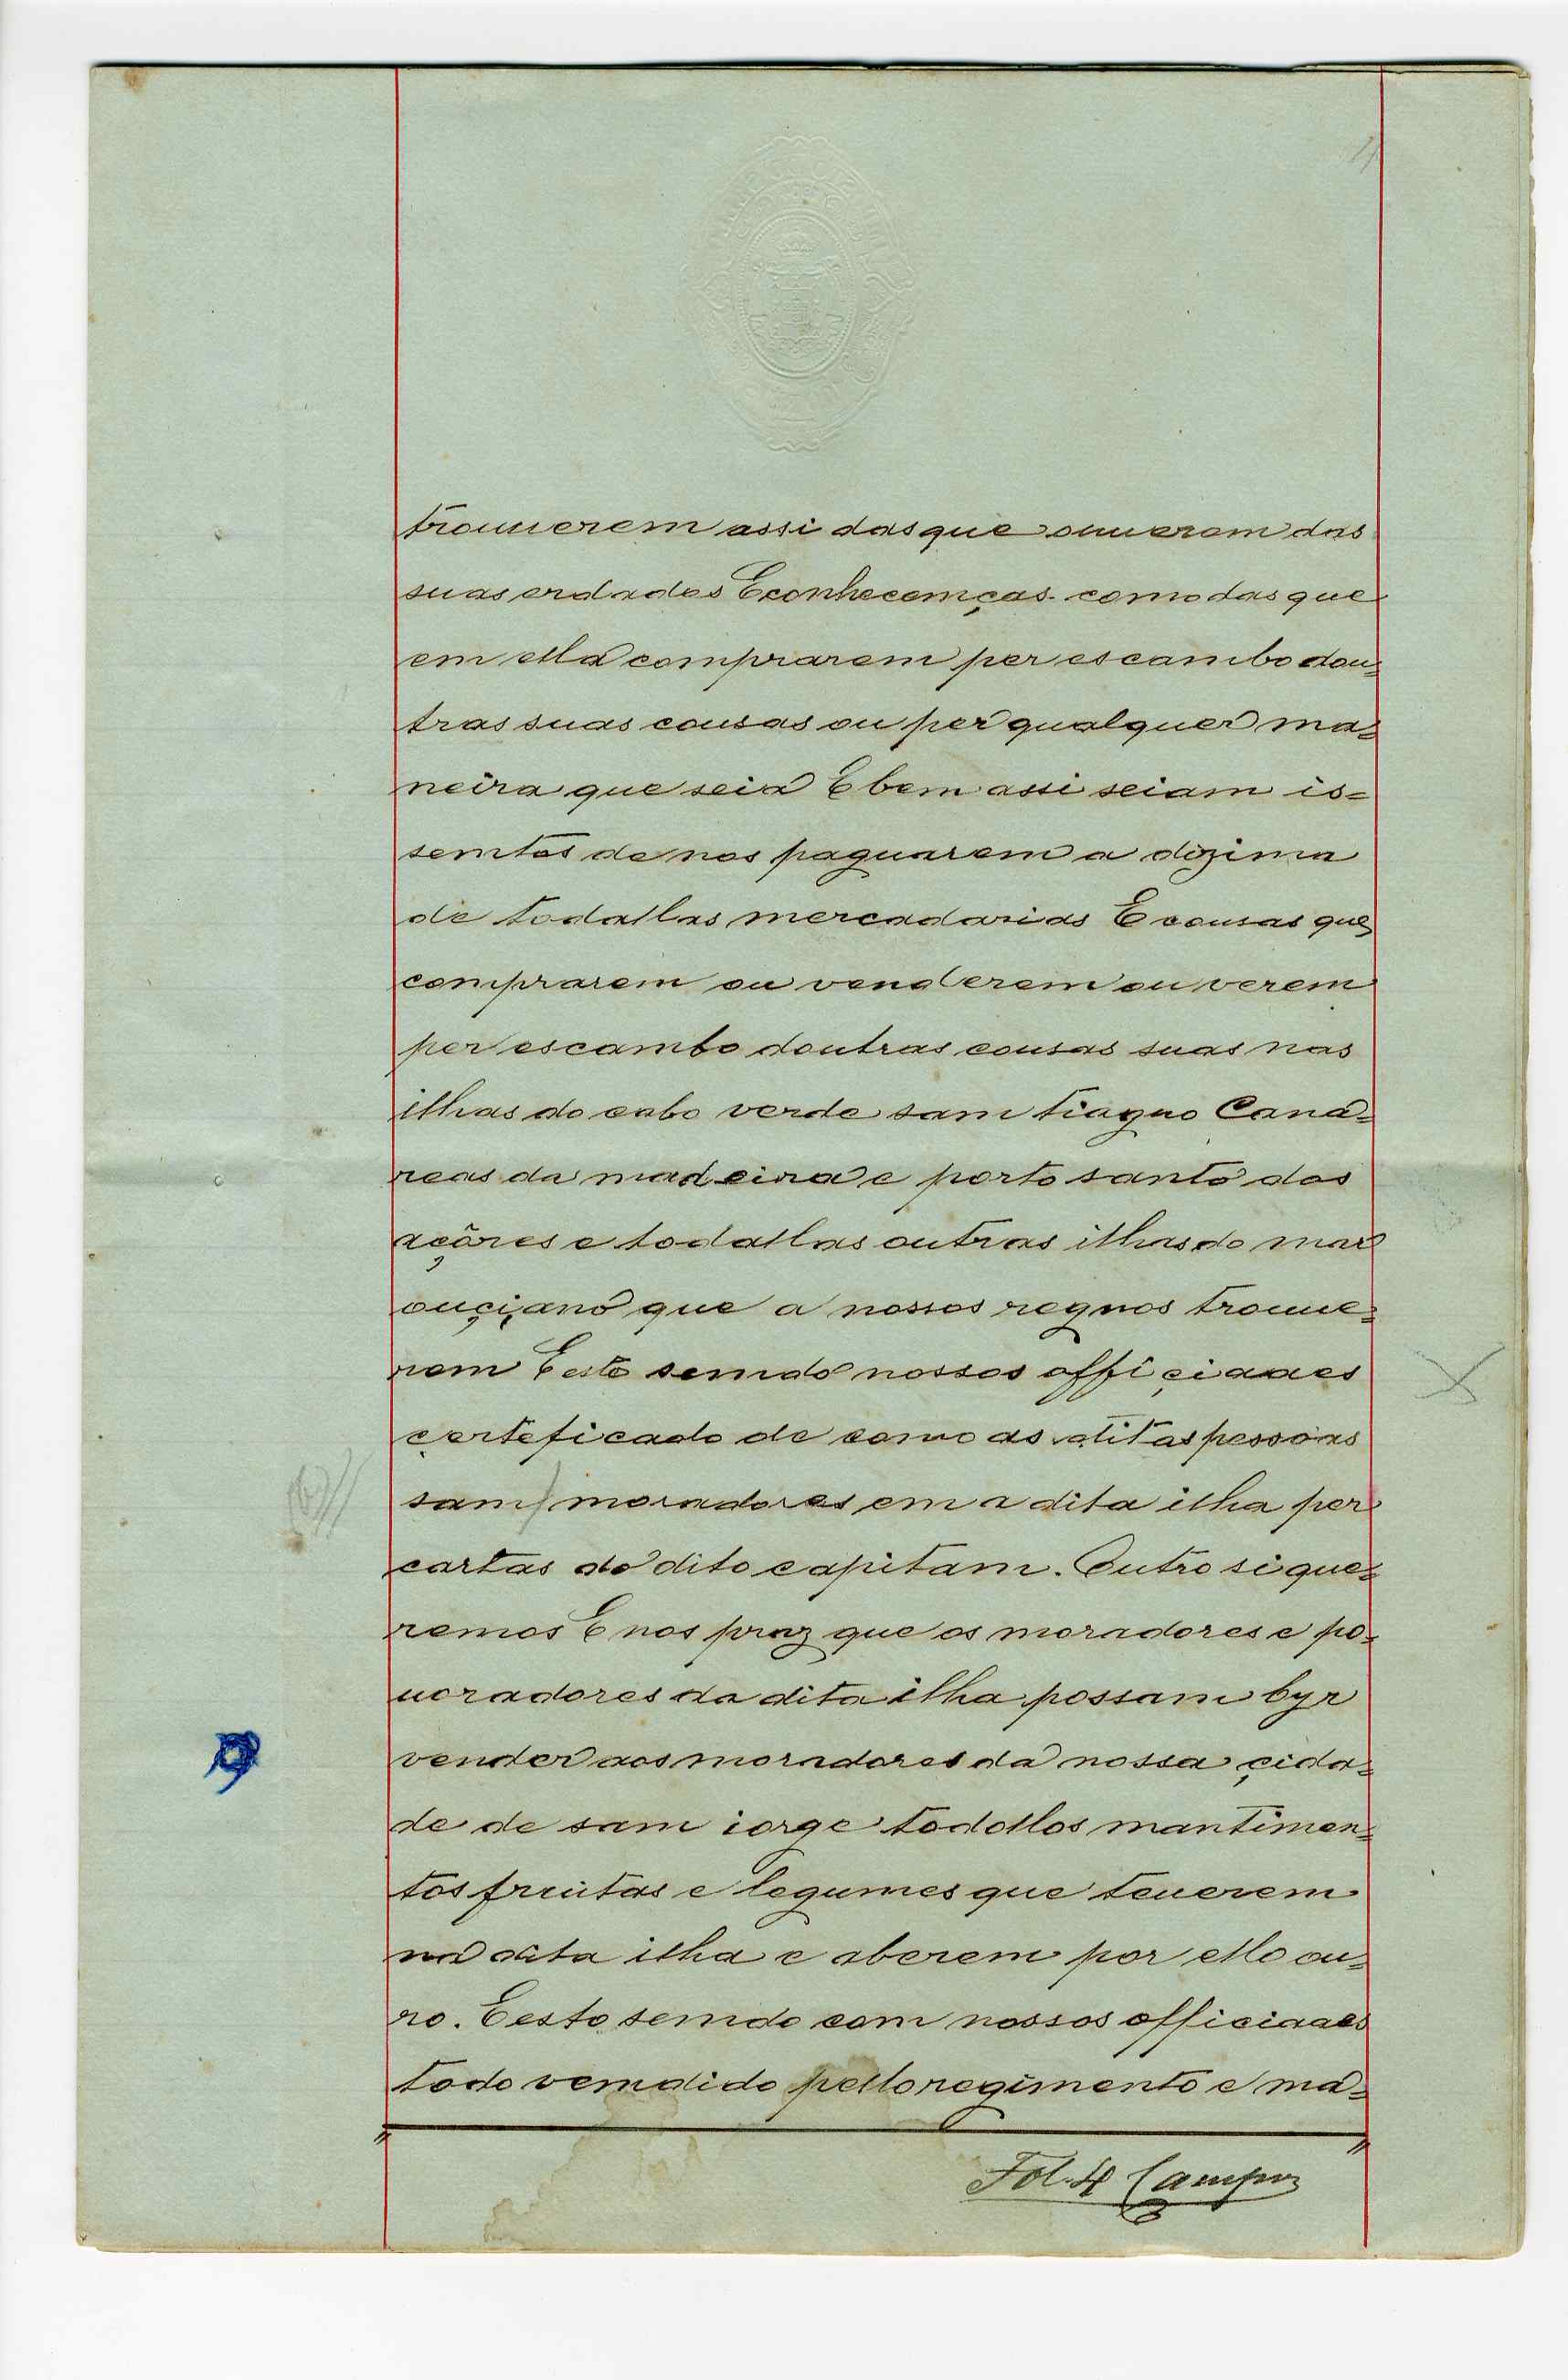 trouuerem assi das que ouuerem das
suas erdades E conhecemças como das que
em ella comprarem per escambo dou=
tras suas cousas ou per qualquer ma=
neira que seia E bem assi seiam is=
semtos de nos paguarem a dizima
de todallas mercadarias E cousas que
comprarem ou venderem ou verem
per escambo doutras cousas suas nas
ilhas do cabo verde sam tiaguo Cana=
reas da madeira e porto santo dos
açôres e todallas outras ilhas do mar
ouçiano que a nossos regnos trouue=
rem E esto semdo nossos offiçiaaes
çerteficado de como as ditas pessoas
sam moradores em a dita ilha per
cartas do dito capitam. Outro si que=
remos E nos praz que os moradores e po=
uoradores da dita ilha possam byr
vender aos moradores da nossa çida=
de de sam iorge todollos mantimen=
tos fruitas e legumes que teuerem
na dita ilha e aberem por ello ou=
ro. E esto semdo com nossos officiaaes
todo vemdido pello regimento e ma=
Fol. 4 Campos